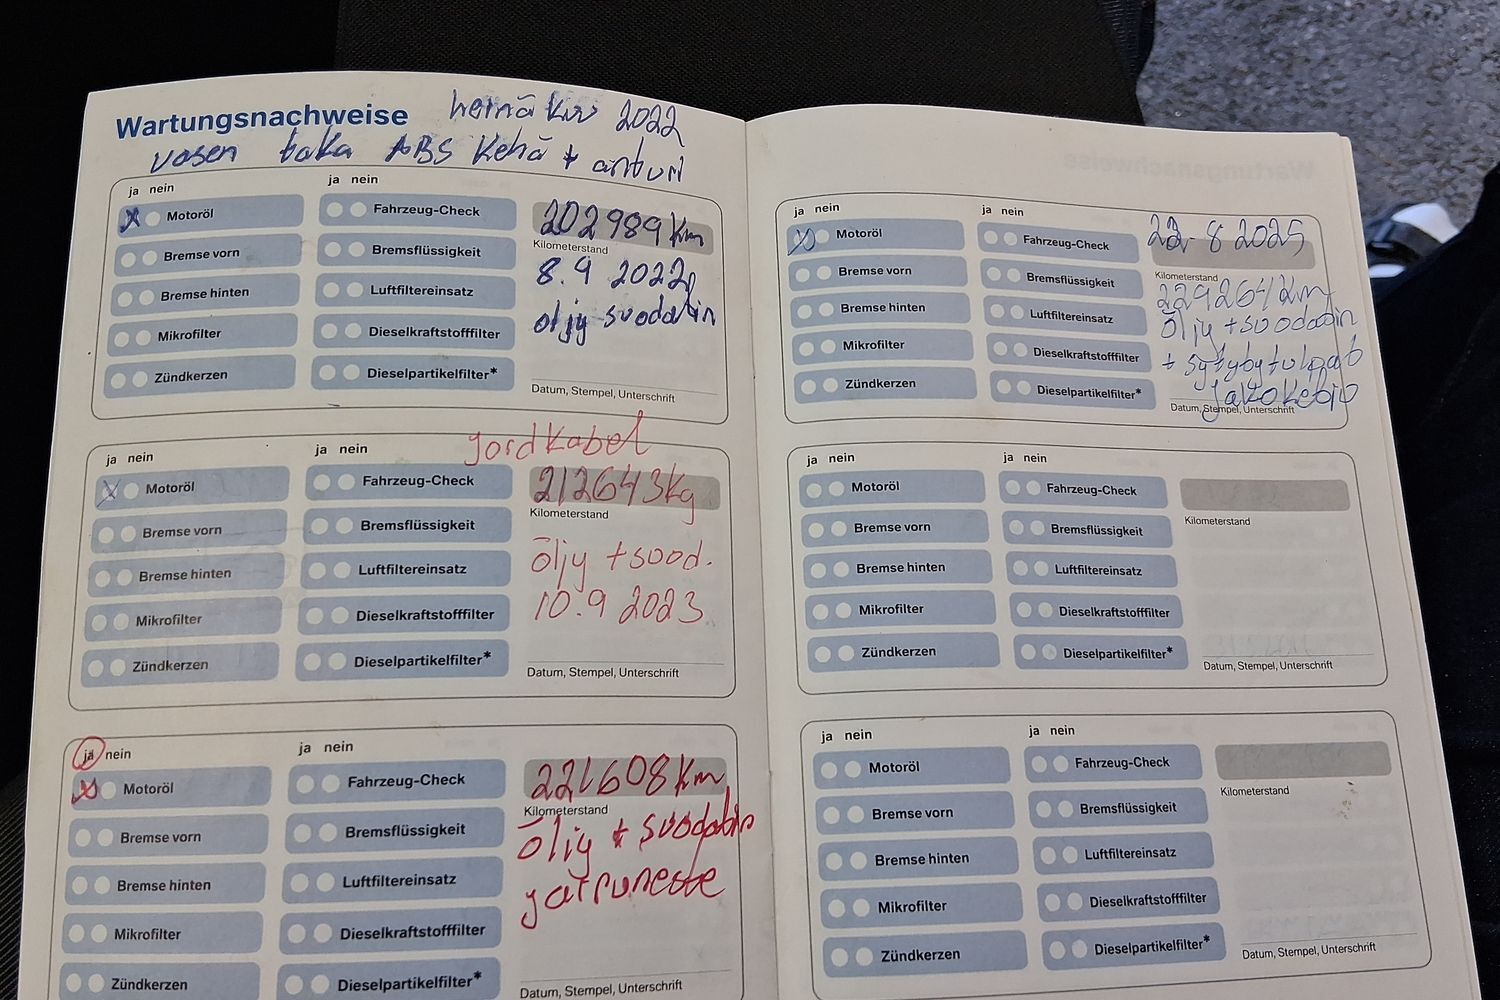 Wartungsnachweise heinä kuu 2022
vasen taka ABS Kehä + anturi
ja nein ja nein
Motoröl Fahrzeug-Check 202989 Km
Kilometerstand
Bremse vorn Bremsflüssigkeit 8.9 2022
Bremse hinten Luftfiltereinsatz öljy suodatin
Mikrofilter Dieselkraftstofffilter
Zündkerzen Dieselpartikelfilter*
Datum, Stempel, Unterschrift
jordkabel
ja nein ja nein
Motoröl Fahrzeug-Check 212643Kg
Kilometerstand
Bremse vorn Bremsflüssigkeit
Bremse hinten Luftfiltereinsatz öljy +suod.
Mikrofilter Dieselkraftstofffilter 10.9 2023
Zündkerzen Dieselpartikelfilter*
Datum, Stempel, Unterschrift
ja nein ja nein
Motoröl Fahrzeug-Check 221608 Km
Kilometerstand
Bremse vorn Bremsflüssigkeit öljy + suodatin
Bremse hinten Luftfiltereinsatz jarruneste
Mikrofilter Dieselkraftstofffilter
Zündkerzen Dieselpartikelfilter*
Datum, Stempel, Unterschrift
ja nein ja nein
Motoröl Fahrzeug-Check 22.8 2025
Kilometerstand
Bremse vorn Bremsflüssigkeit 229264 Km
Bremse hinten Luftfiltereinsatz öljy +suodatin
Mikrofilter Dieselkraftstofffilter + sytytystulpat
Zündkerzen Dieselpartikelfilter*
Datum, Stempel, Unterschrift
ja nein ja nein
Motoröl Fahrzeug-Check
Kilometerstand
Bremse vorn Bremsflüssigkeit
Bremse hinten Luftfiltereinsatz
Mikrofilter Dieselkraftstofffilter
Zündkerzen Dieselpartikelfilter*
Datum, Stempel, Unterschrift
ja nein ja nein
Motoröl Fahrzeug-Check
Kilometerstand
Bremse vorn Bremsflüssigkeit
Bremse hinten Luftfiltereinsatz
Mikrofilter Dieselkraftstofffilter
Zündkerzen Dieselpartikelfilter*
Datum, Stempel, Unterschrift